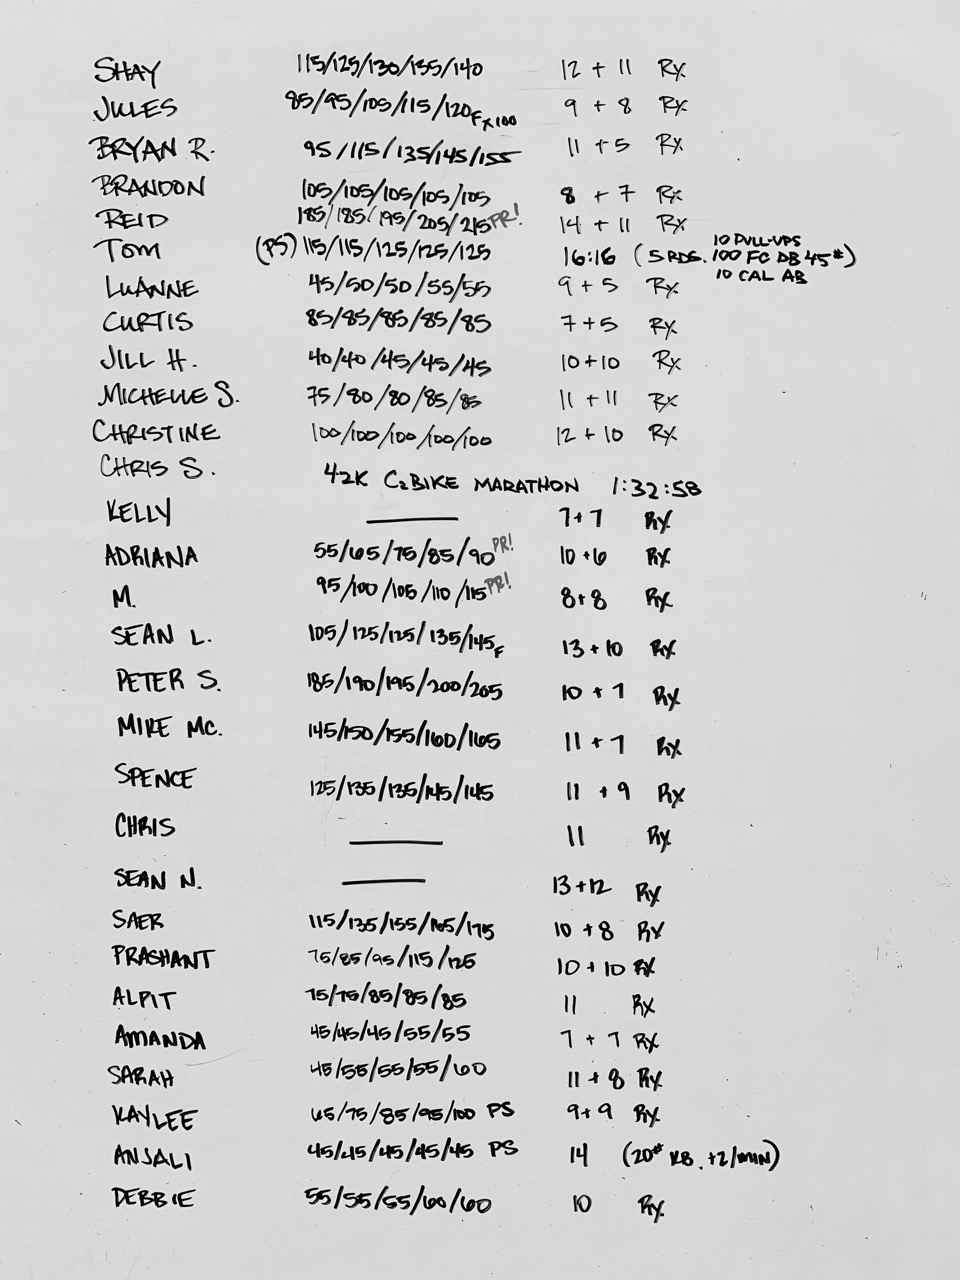 SHAY 115/125/130/135/140 12 + 11 Rx
JULES 85/95/105/115/120F x100 9 + 8 Rx
BRYAN R. 95/115/135/145/155 11 + 5 Rx
BRANDON 105/105/105/105/105 8 + 7 Rx
REID 185/185/195/205/215 PR! 14 + 11 Rx
TOM (PS) 115/115/125/125/125 16:16 (5 RDS. 10 PULL-UPS
100 FC DB 45#)
10 CAL AB
LUANNE 45/50/50/55/55 9 + 5 Rx
CURTIS 85/85/85/85/85 7+5 Rx
JILL H. 40/40/45/45/45 10+10 Rx
MICHELLE S. 75/80/80/85/85 11 + 11 Rx
CHRISTINE 100/100/100/100/100 12 + 10 Rx
CHRIS S. 42K C2BIKE MARATHON 1:32:58
KELLY 7+7 Rx
ADRIANA 55/65/75/85/90 PR! 10 +6 Rx
M. 95/100/105/110/115 PR! 8+8 Rx
SEAN L. 105/125/125/135/145F 13+10 Rx
PETER S. 185/190/195/200/205 10 + 7 Rx
MIKE MC. 145/150/155/160/165 11 + 7 Rx
SPENCE 125/135/135/145/145 11 + 9 Rx
CHRIS 11 Rx
SEAN N. 13+12 Rx
SAER 115/135/155/165/175 10 + 8 Rx
PRASHANT 75/85/95/115/125 10 + 10 Rx
ALPIT 75/75/85/85/85 11 Rx
AMANDA 45/45/45/55/55 7 + 7 Rx
SARAH 45/55/55/55/60 11 + 8 Rx
KAYLEE 65/75/85/95/100 PS 9+9 Rx
ANJALI 45/45/45/45/45 PS 14 (20# KB. +2/MIN)
DEBBIE 55/55/55/60/60 10 Rx